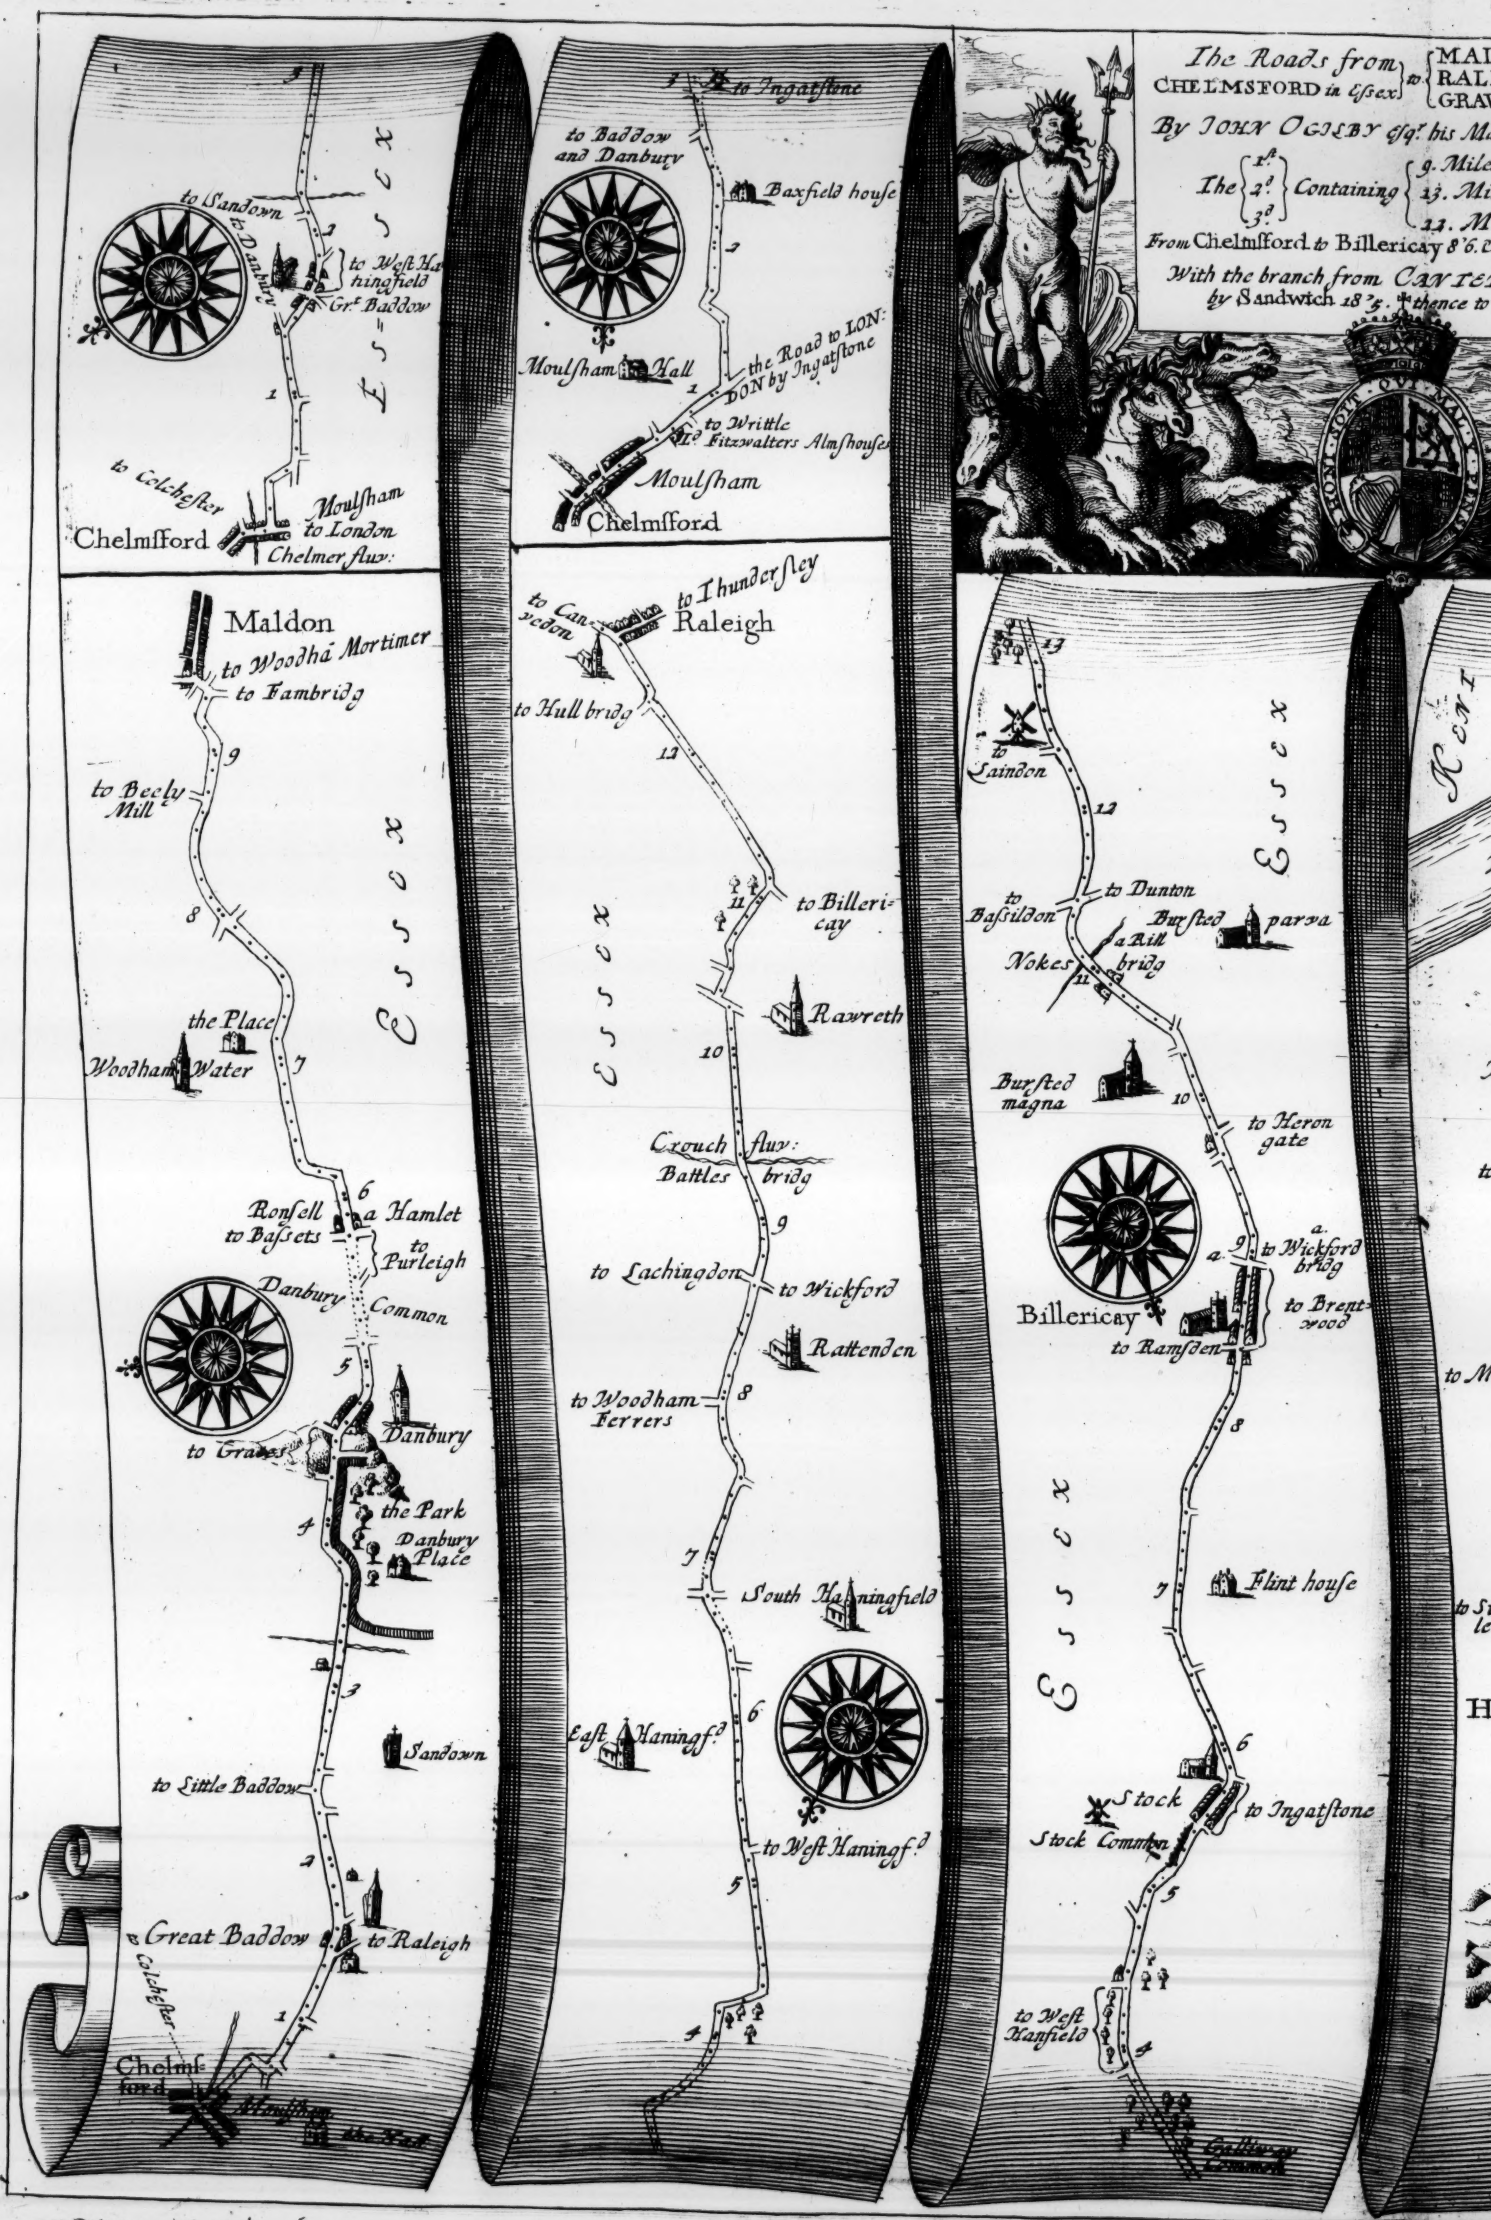 The Roads from
CHELMSFORD in Essex
to
By IOHN OGILBY Esqr. his
The
1st
2d.
3d
Containing
9. Mile
13. Mi
22. M
From Chelmsford to Billericay 8'6.
With the branch from
by Sandwich 18'5. thence to
HONI · SOIT · QVI · MAL · Y · PENSE
3
Essex
to Sandown
to Danbury
2
to West Ha
ningfield
Grt. Baddow
1
to Colchester
Moulsham
to London
Chelmsford
Chelmer fluv:
Maldon
to Woodhā Mortimer
to Fambridg
9
to Beely
Mill
Essex
8
the Place
Woodham Water
7
6
Ronsell
a Hamlet
to Bassets
to
Purleigh
Danbury Common
5
Danbury
to Graces
the Park
4
Danbury
Place
3
Sandown
to Little Baddow
2
Great Baddow
to Raleigh
to Colchester
1
Chelms-
ford
Moulsham
the Hall
3
to Ingatstone
to Baddow
and Danbury
Baxfield house
2
the Road to LON:
DON by Ingatstone
Moulsham Hall
1
to Writtle
Ld. Fitzwalters Almshouses
Moulsham
Chelmsford
to Can-
vedon
to Thundersley
Raleigh
to Hull bridg
12
11
to Billeri-
cay
Essex
Rawreth
10
Crouch fluv:
Battles bridg
9
to Lachingdon
to Wickford
Rattenden
8
to Woodham
Ferrers
7
South Haningfield
6
East Haningf.d
to West Haningf.d
5
4
13
to
Laindon
Essex
12
to
Bassildon
to Dunton
Bursted parva
a Rill
Nokes bridg
11
Bursted
magna
10
to Heron
gate
a.
9
to Wickford
bridg
a
Billericay
to Brent-
wood
to Ramsden
8
Essex
7
Flint house
6
Stock
to Ingatstone
Stock Common
5
to West
Hanfield
4
Galliway
Common
Kent